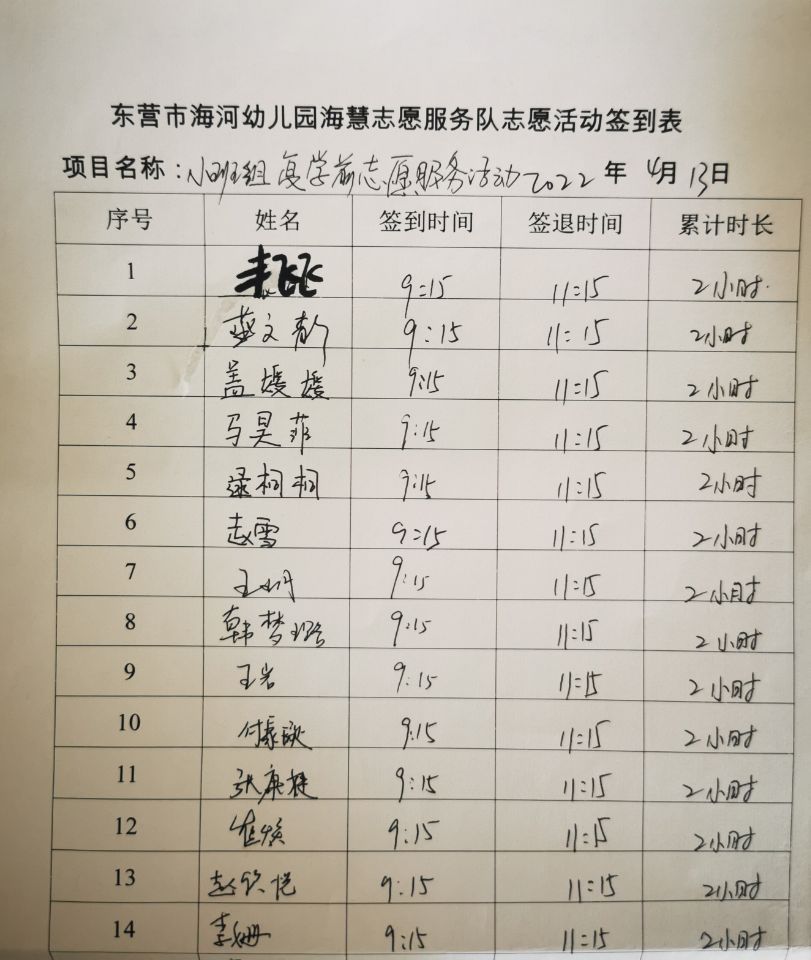 东营市海河幼儿园海慧志愿服务队志愿活动签到表
项目名称：小班组复学前志愿服务活动 2022 年 4月 13日
序号 姓名 签到时间 签退时间 累计时长
1 飞飞 9:15 11:15 2小时
2 燕文 9:15 11:15 2小时
3 盖媛媛 9:15 11:15 2小时
4 马昊菲 9:15 11:15 2小时
5 桐桐 9:15 11:15 2小时
6 赵雪 9:15 11:15 2小时
7 王 9:15 11:15 2小时
8 韩梦璐 9:15 11:15 2小时
9 王岩 9:15 11:15 2小时
10 付 9:15 11:15 2小时
11 张康捷 9:15 11:15 2小时
12 崔 9:15 11:15 2小时
13 赵 悦 9:15 11:15 2小时
14 李姗 9:15 11:15 2小时